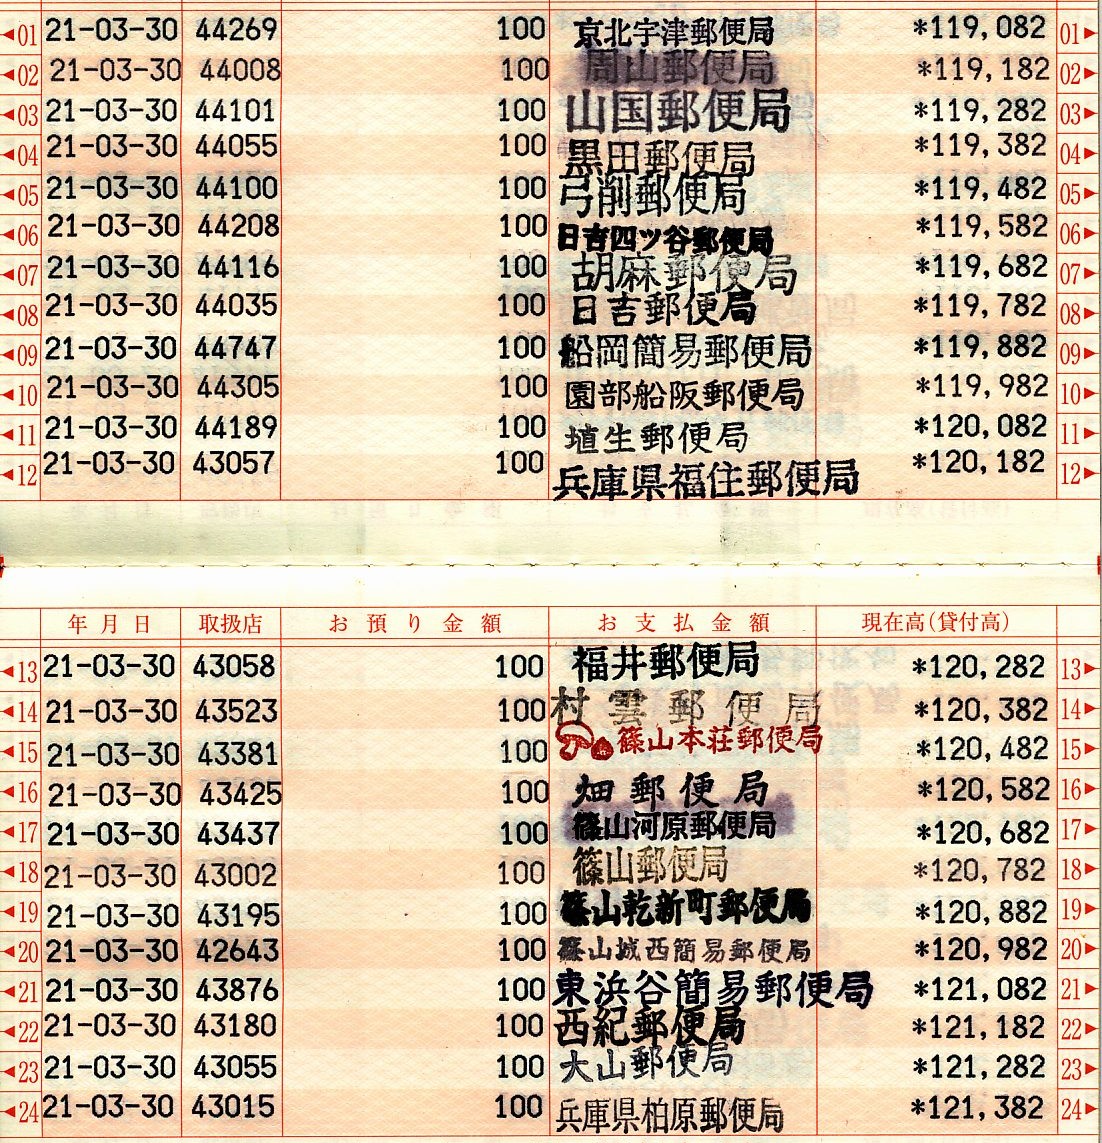 ◄01 21-03-30 44269 100 京北宇津郵便局 *119,082 01►
◄02 21-03-30 44008 100 周山郵便局 *119,182 02►
◄03 21-03-30 44101 100 山国郵便局 *119,282 03►
◄04 21-03-30 44055 100 黒田郵便局 *119,382 04►
◄05 21-03-30 44100 100 弓削郵便局 *119,482 05►
◄06 21-03-30 44208 100 日吉四ツ谷郵便局 *119,582 06►
◄07 21-03-30 44116 100 胡麻郵便局 *119,682 07►
◄08 21-03-30 44035 100 日吉郵便局 *119,782 08►
◄09 21-03-30 44747 100 船岡簡易郵便局 *119,882 09►
◄10 21-03-30 44305 100 園部船阪郵便局 *119,982 10►
◄11 21-03-30 44189 100 埴生郵便局 *120,082 11►
◄12 21-03-30 43057 100 兵庫県福住郵便局 *120,182 12►
年月日 取扱店 お預り金額 お支払金額 現在高(貸付高)
◄13 21-03-30 43058 100 福井郵便局 *120,282 13►
◄14 21-03-30 43523 100 村雲郵便局 *120,382 14►
◄15 21-03-30 43381 100 篠山本荘郵便局 *120,482 15►
◄16 21-03-30 43425 100 畑郵便局 *120,582 16►
◄17 21-03-30 43437 100 篠山河原郵便局 *120,682 17►
◄18 21-03-30 43002 100 篠山郵便局 *120,782 18►
◄19 21-03-30 43195 100 篠山乾新町郵便局 *120,882 19►
◄20 21-03-30 42643 100 篠山城西簡易郵便局 *120,982 20►
◄21 21-03-30 43876 100 東浜谷簡易郵便局 *121,082 21►
◄22 21-03-30 43180 100 西紀郵便局 *121,182 22►
◄23 21-03-30 43055 100 大山郵便局 *121,282 23►
◄24 21-03-30 43015 100 兵庫県柏原郵便局 *121,382 24►